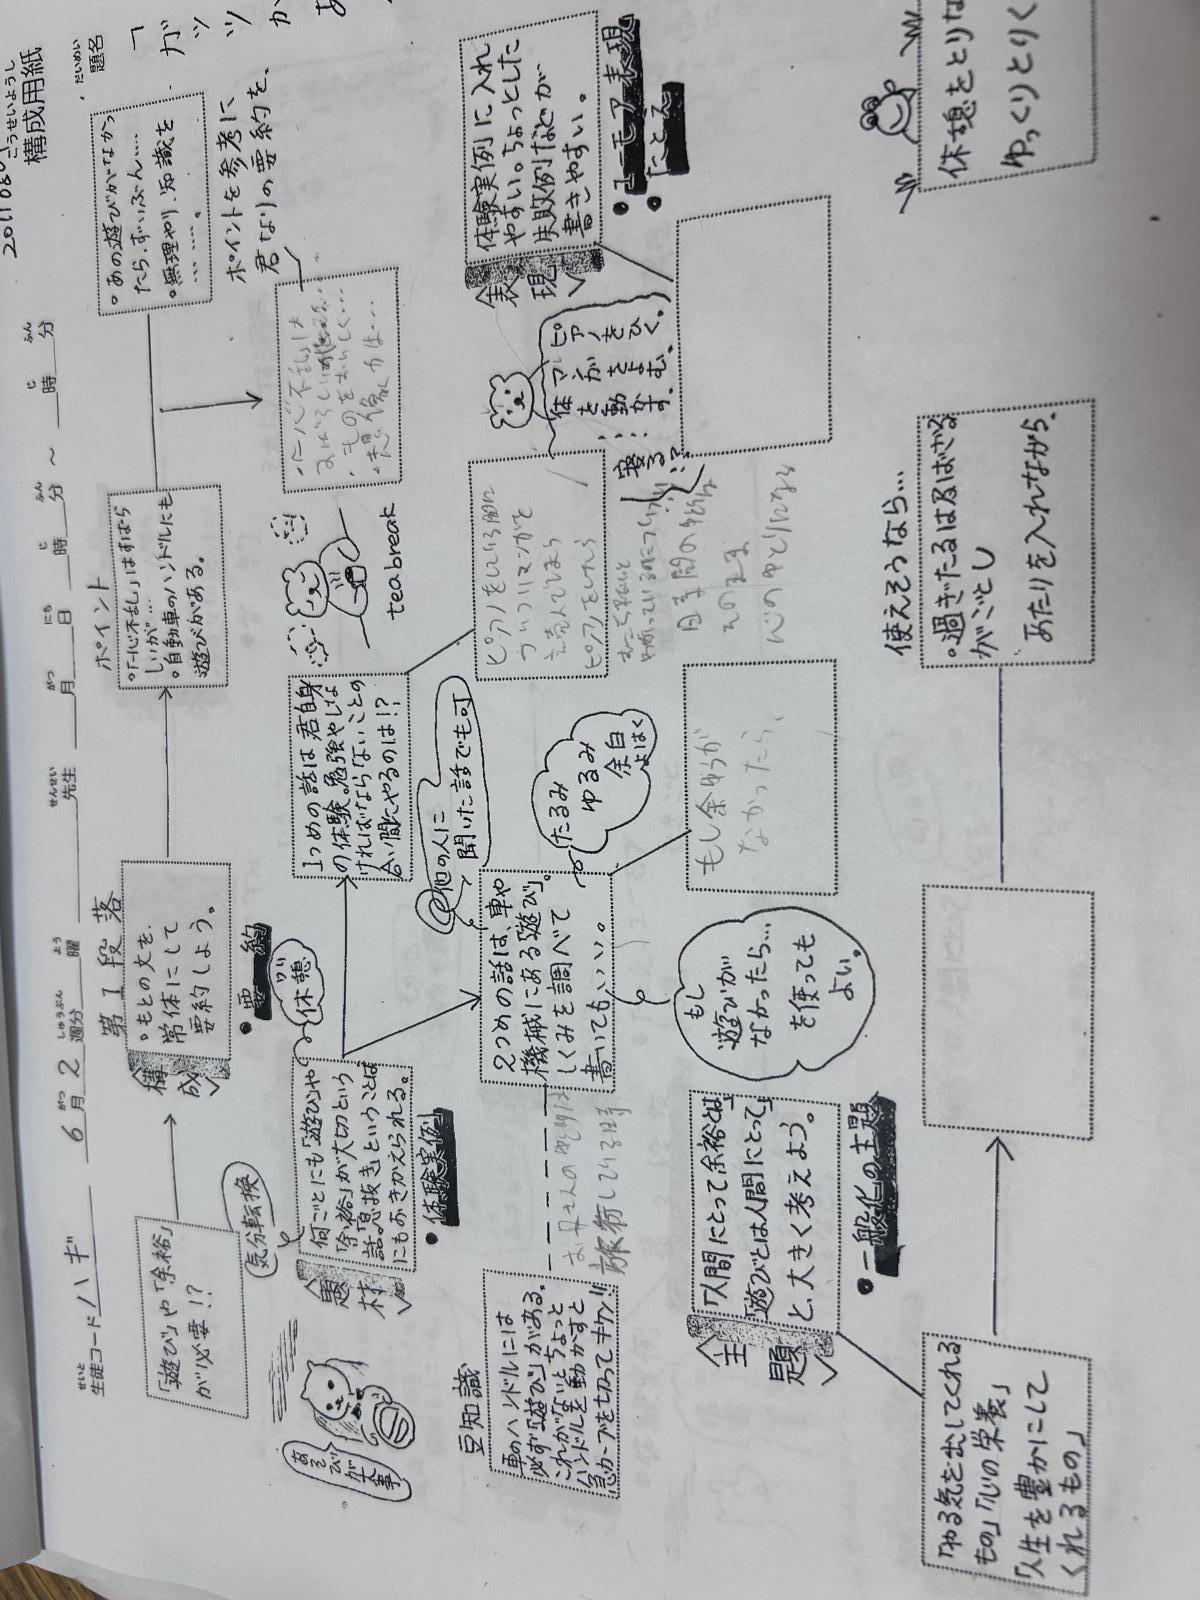 構成用紙
こうせいようし
生徒コード ハギ 6月2週分 曜 先生 月 日 時 分 ～ 時 分
せいと がつ しゅうぶん よう せんせい がつ にち じ ふん じ ふん
題名
だいめい
第1段落
「遊び」や「余裕」
が必要!?
構成
。もとの文を、
常体にして
要約しよう。
・要約
ポイント
。「一心不乱」はすばら
しいが…
。自動車のハンドルにも
遊びがある。
。あの遊びがなかっ
たら、ずいぶん……
。無理やり、知識を
………。
ポイントを参考に
君なりの要約を、
あそびが大事
気分転換
題材
何ごとにも「遊び」や
「余裕」が大切という
話。「息抜き」ということば
にもおきかえられる。
・体験実例
休憩
1つめの話は君自身
の体験。勉強やしな
ければならないことの
合い間にやるのは!?
tea break
ピアノをひく。
マンガをよむ。
体を動かす。
寝る?
表現
体験実例に入れ
やすい。ちょっとした
失敗例などが
書きやすい。
・ユーモア表現
・たとえ
豆知識
車のハンドルには
必ず「遊び」がある。
これがないとちょっと
ハンドルを動かすと
急カーブを切ってキケン!!
旅行している時
2つめの話は、車や
機械にある「遊び」。
しくみを調べて
書いてもいい。
他の人に
聞いた話でも可
たるみ
ゆるみ
余白
よはく
もし
遊びが
なかったら…
を使っても
よい。
もし余ゆうが
なかったら、
心のゆとりになる
主題
「人間にとって余裕とは」
「遊びとは人間にとって」
と、大きく考えよう。
・一般化の主題
「やる気を出してくれる
もの」「心の栄養」
「人生を豊かにして
くれるもの」
使えそうなら…
。過ぎたるは及ばざる
がごとし
あたりを入れながら。
休憩をとりな
ゆっくりとりく